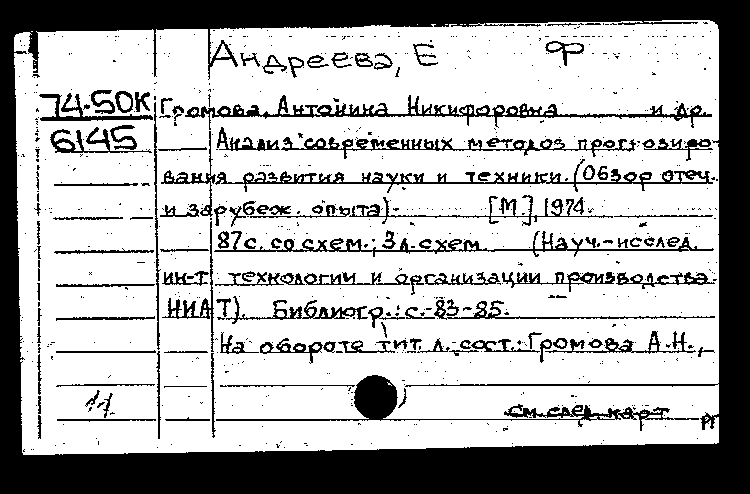 Андреева, Е Ф
74-50К Громова, Антонина Никифоровна и др.
6145 Анализ современных методов прогнозиро-
вания развития науки и техники. (Обзор отеч.
и зарубеж. опыта).- [М], 1974.
87с. со схем.; 3л. схем. (Науч.-исслед.
ин-т технологии и организации производства
НИАТ). Библиогр.: с.-83-85.
На обороте тит л. сост.: Громова А.Н.,
см. след. карт